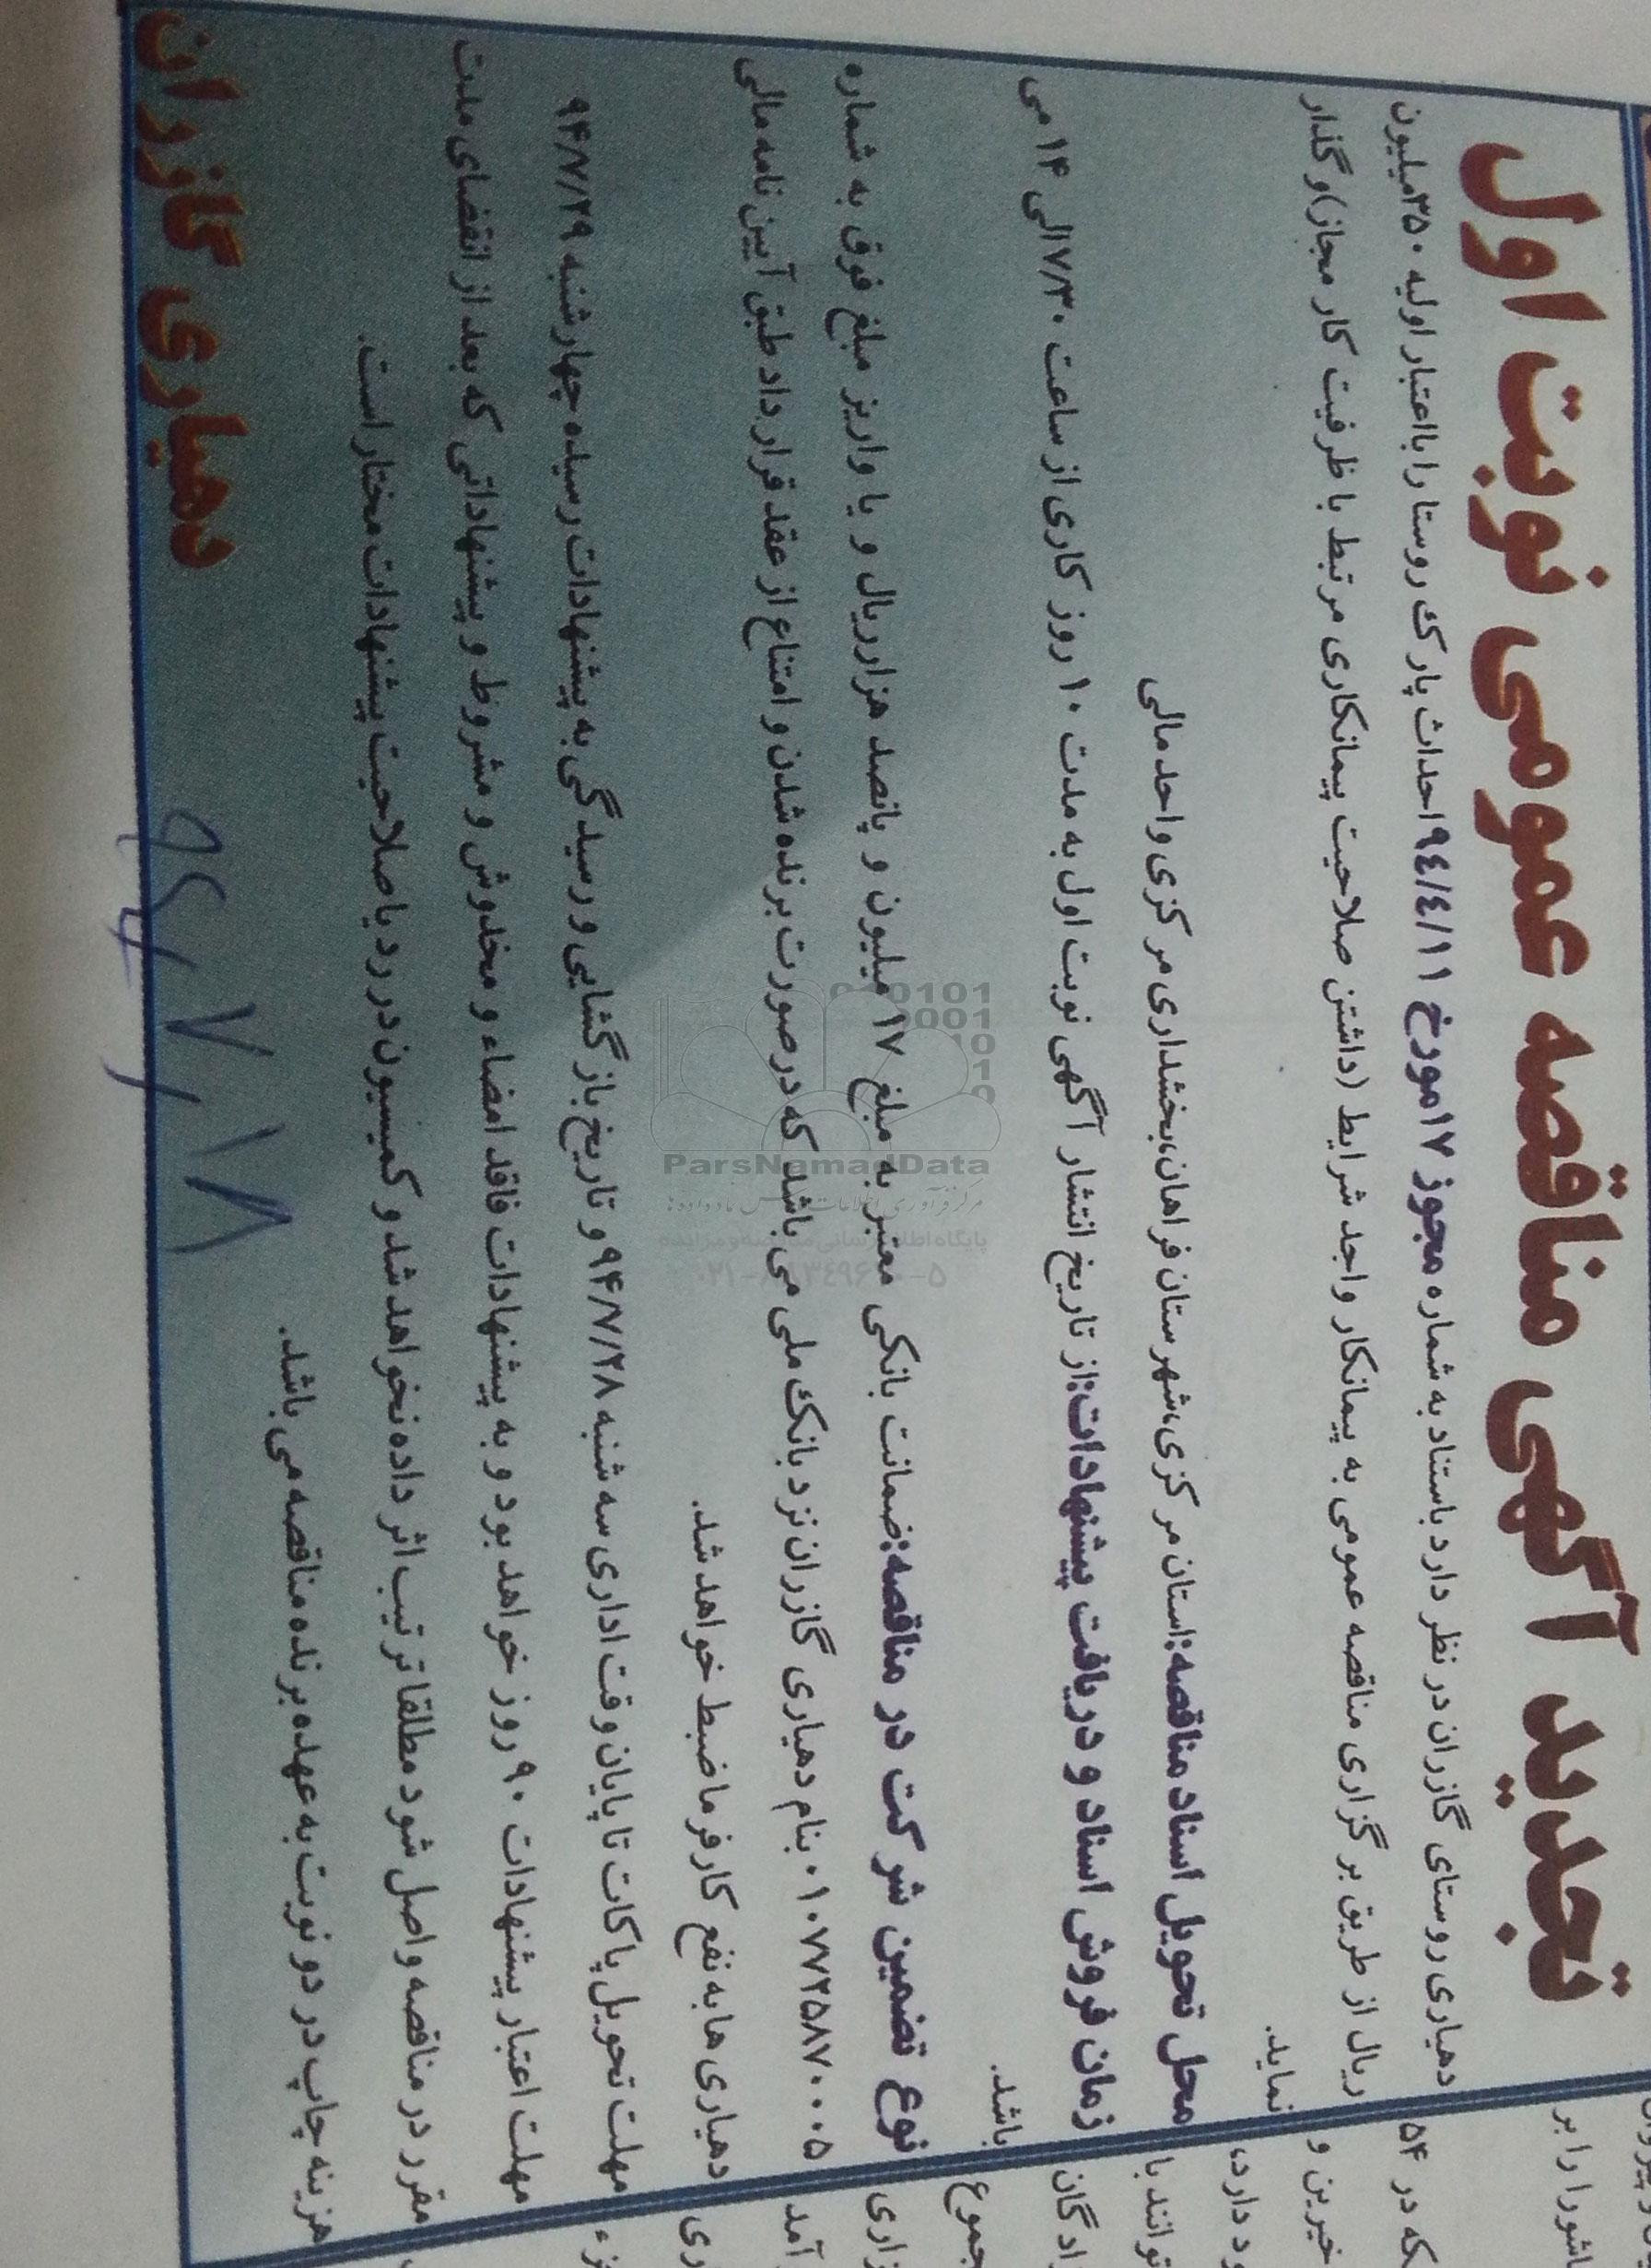 تجدید آگهی مناقصه عمومی نوبت اول
دهیاری روستای گازران در نظر دارد باستناد به شماره مجوز ۱۷مورخ ۹٤/٤/۱۱احداث پارک روستا را بااعتبار اولیه ۳۵۰میلیون
ریال از طریق برگزاری مناقصه عمومی به پیمانکار واجد شرایط (داشتن صلاحیت پیمانکاری مرتبط با ظرفیت کار مجاز)واگذار
نماید.
محل تحویل اسناد مناقصه:استان مرکزی،شهرستان فراهان،بخشداری مرکزی واحد مالی
زمان فروش اسناد و دریافت پیشنهادات:از تاریخ انتشار آگهی نوبت اول به مدت ۱۰ روز کاری از ساعت ۷/۳۰الی ۱۴ می
باشد.
نوع تضمین شرکت در مناقصه:ضمانت بانکی معتبر به مبلغ ۱۷ میلیون و پانصد هزار ریال و یا واریز مبلغ فوق به شماره
۰۱۰۷۷۲۵۸۷۰۰۰۵ بنام دهیاری گازران نزد بانک ملی می باشد که در صورت برنده شدن و امتناع از عقد قرارداد طبق آیین نامه مالی
دهیاری ها به نفع کارفرما ضبط خواهد شد.
مهلت تحویل پاکات تا پایان وقت اداری سه شنبه ۹۴/۷/۲۸ و تاریخ بازگشایی و رسیدگی به پیشنهادات رسیده چهارشنبه ۹۴/۷/۲۹
مهلت اعتبار پیشنهادات ۹۰ روز خواهد بود و به پیشنهادات فاقد امضاء و مخدوش و مشروط و پیشنهاداتی که بعد از انقضای مدت
مقرر در مناقصه واصل شود مطلقا ترتیب اثر داده نخواهد شد و کمیسیون در رد یا صلاحیت پیشنهادات مختار است.
هزینه چاپ در دو نوبت به عهده برنده مناقصه می باشد.
دهیاری گازران
۹۴/۷/۱۸
ParsNamadData